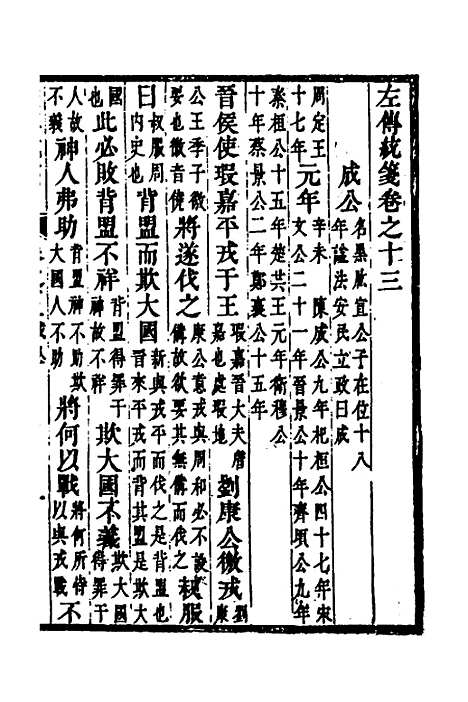 左傳統箋卷之十三
成公名黑肱宣公子在位十八年諡法安民立政曰成
周定王十七年元年辛未 陳成公九年杞桓公四十七年宋文公二十一年晉景公十年齊頃公九年
秦桓公十五年楚共王元年衛穆公十年蔡景公二年鄭襄公十五年
晉侯使瑕嘉平戎于王瑕嘉晉大夫詹嘉也處瑕地劉康公徼戎劉康
公王季子徼要也徼音驍將遂伐之康公意戎與周和必不設備故欲要其無備而伐之叔服
曰叔服周內史也背盟而欺大國新與戎平而伐之是背盟也晉來平戎而背其盟是欺大
國也此必敗背盟不祥背盟得罪于神故不祥欺大國不義欺大國得罪于
人故不義神人弗助背盟神不助欺大國人不助將何以戰將何所恃以與戎戰不